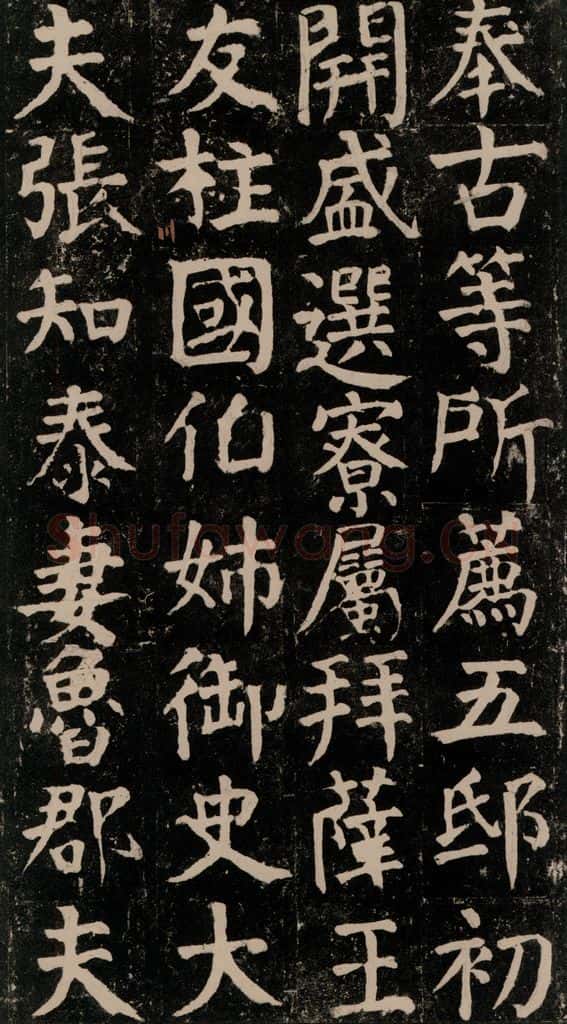 奉古等所薦五邸初
開盛選寮屬拜薩王
友柱國伯姊御史大
夫張知泰妻魯郡夫
Shufawang.Cn